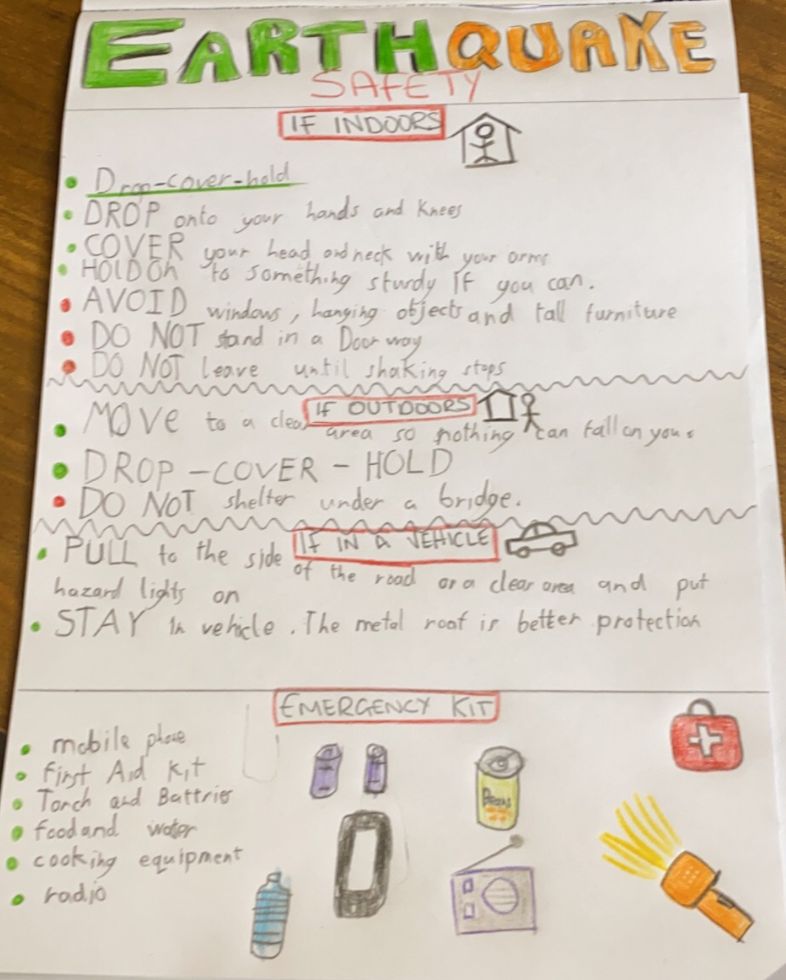 EARTHQUAKE
SAFETY
IF INDOORS
Drop-cover-hold
DROP onto your hands and knees
COVER your head and neck with your arms
HOLD ON to something sturdy if you can.
AVOID windows, hanging objects and tall furniture
DO NOT stand in a Doorway
DO NOT leave until shaking stops
IF OUTDOORS
MOVE to a clear area so nothing can fall on you.
DROP - COVER - HOLD
DO NOT shelter under a bridge.
IF IN A VEHICLE
PULL to the side of the road or a clear area and put
hazard lights on
STAY in vehicle. The metal roof is better protection
EMERGENCY KIT
mobile phone
First Aid Kit
Torch and Battries
food and water
cooking equipment
radio
Beans